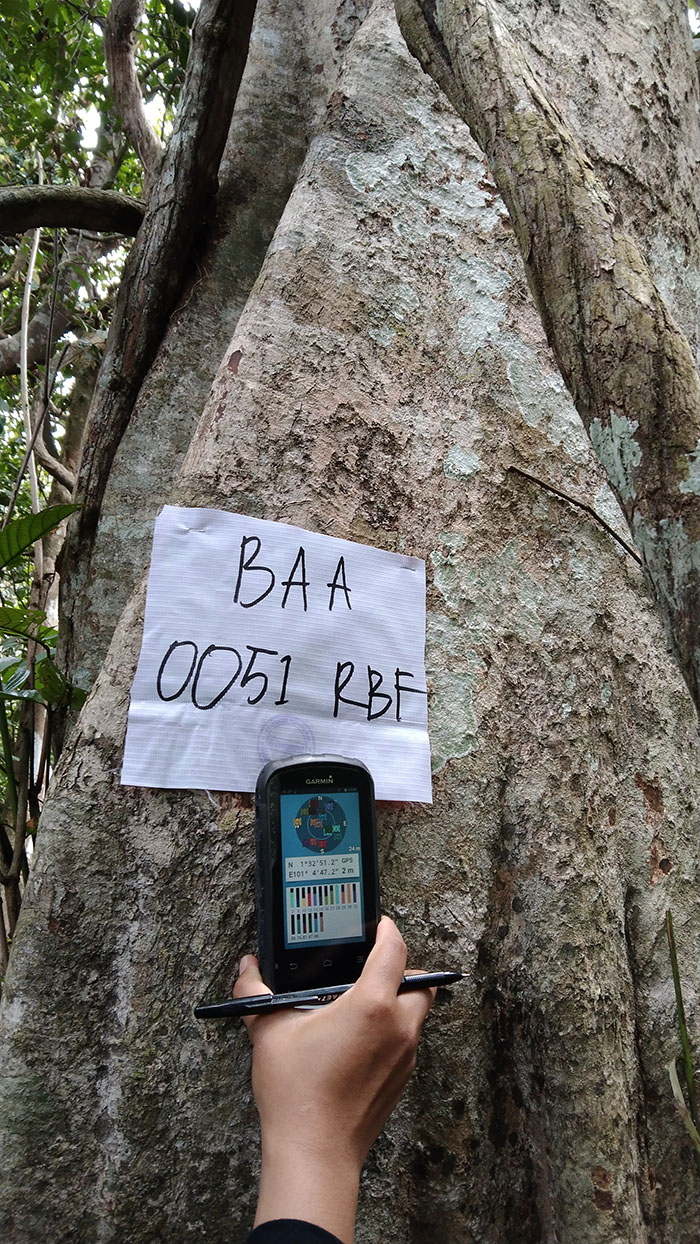 BAA
0051 RBF
GARMIN
24 m
N 1°32'51.2" GPS
E101° 4'47.2" 2 m